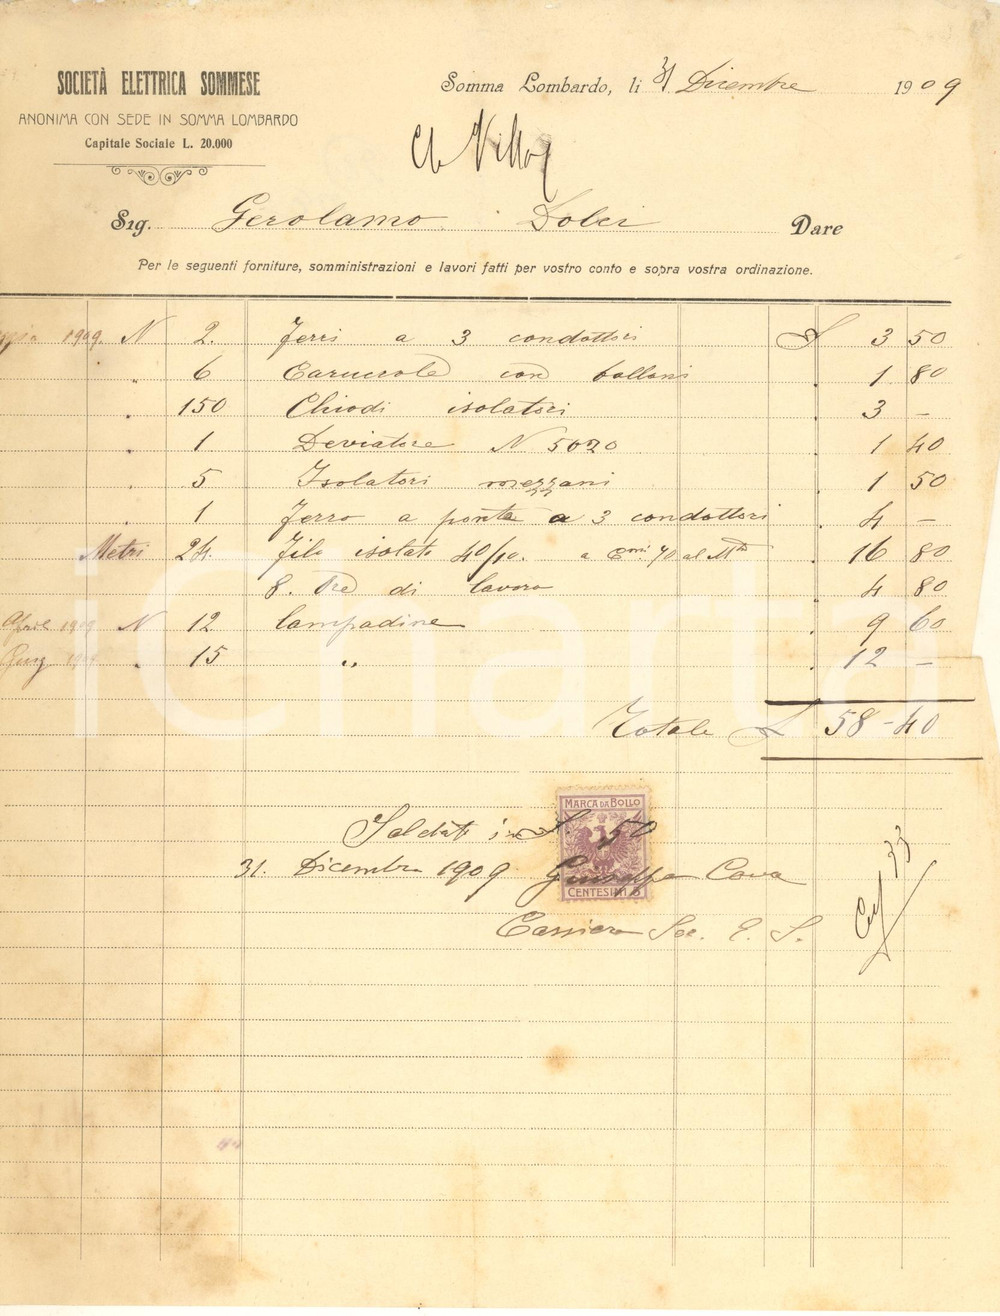 SOCIETÀ ELETTRICA SOMMESE
ANONIMA CON SEDE IN SOMMA LOMBARDO
Capitale Sociale L. 20.000
Somma Lombardo, li 31 Dicembre 1909
Sig. Gerolamo Dolci Dare
Per le seguenti forniture, somministrazioni e lavori fatti per vostro conto e sopra vostra ordinazione.
1909. N 2. Ferri a 3 condottori £ 3 50
" 6 Carucole con 1 80
" 150 Chiodi isolatori 3 -
" 1 Deviatore N 5020 1 40
" 5 Isolatori mezzani 1 50
" 1 Ferro a ponte a 3 condottori 4 -
Metri 24. Filo isolato 40/10. a Cmi 70 al Mtro 16 80
8. Ore di lavoro 4 80
Aprile 1909 N 12 lampadine 9 60
15 " 12 -
Totale £ 58-40
MARCA DA BOLLO
Saldato in £. 50
31. Dicembre 1909 Giuseppe Cova
CENTESIMI 5
Cassiere Soc. E. S.
33
iCharta